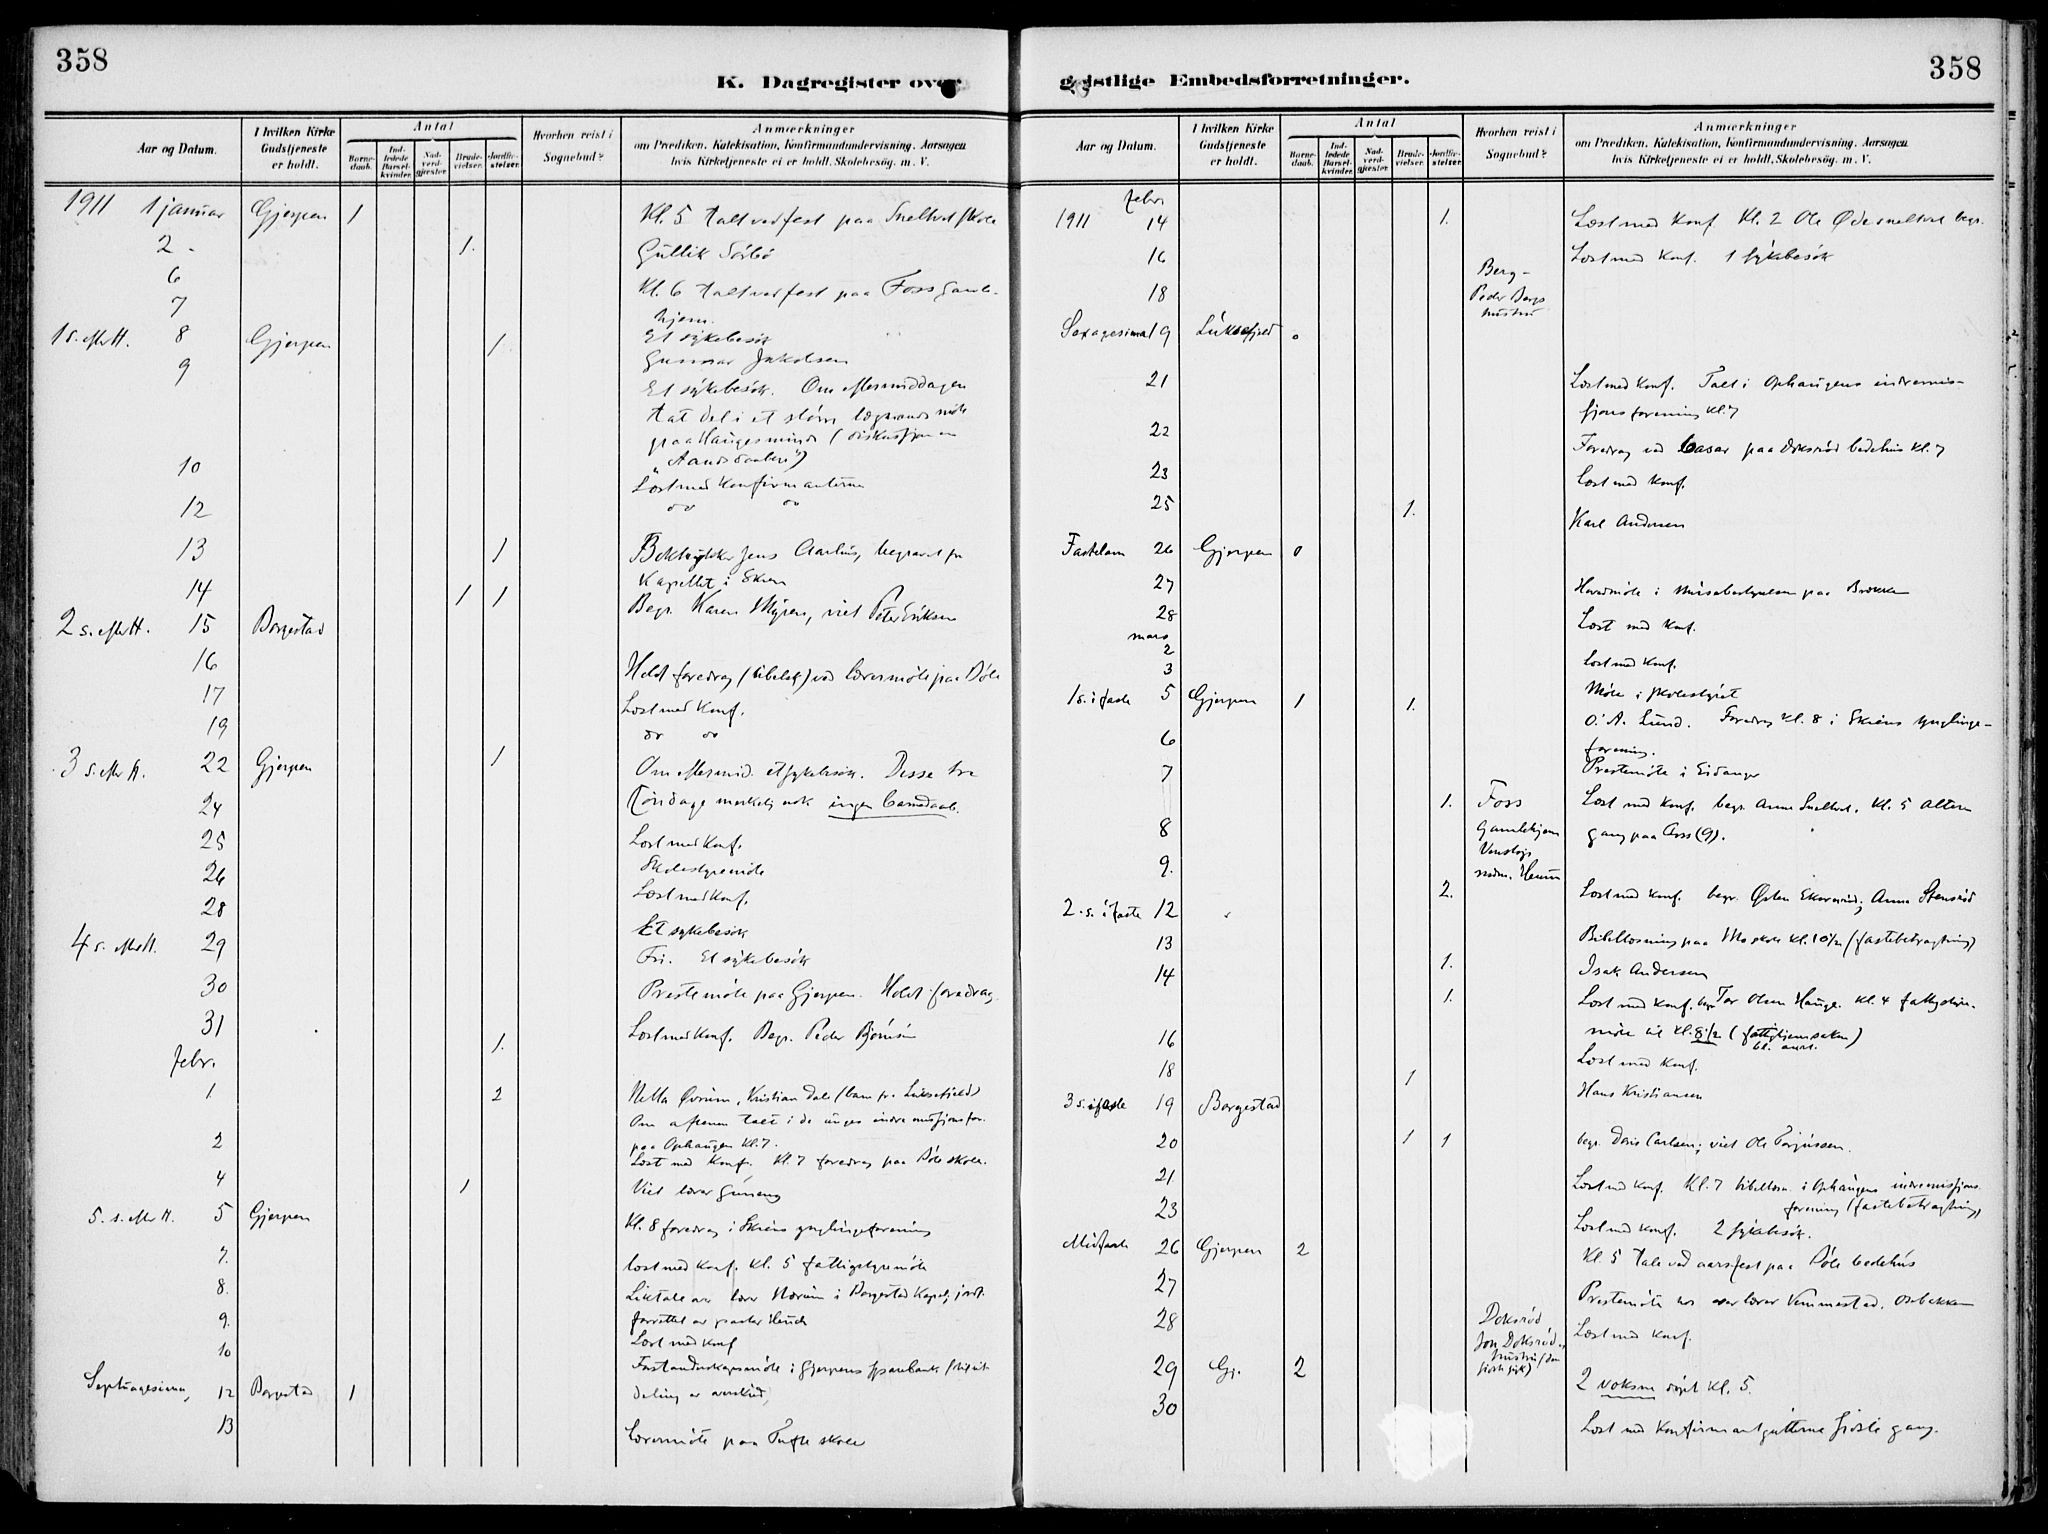 358
K. Dagregister over
Aar og Datum.
I hvilken Kirke Gudstjeneste er holdt.
Antal
Barnedaab.
Indledede Barselkvinder.
Nadverdgjester.
Brudevielser.
Jordfæstelser.
Hvorhen reist i Sognebud?
Anmærkninger
om Prædiken. Katekisation, Konfirmandundervisning. Aarsagen
hvis Kirketjeneste ei er holdt. Skolebesøg. m. V.
1911 1 januar Gjerpen 1 Kl. 5 talt ved fest paa Sneltvet skole
2 - 1. Gullik Sørbø
6 Kl. 6 talt ved fest paa Foss Gamle-
7 hjem.
1 s. efter H. 8 Gjerpen 1 Et sykebesøk
Gunnar Jakobsen
9 Et sykebesøk. Om eftermiddagen
tat del i et større lægmands møte
paa Haugesminde (diskusjon om
"Aandsdaaben")
10 Læst med konfirmanterne
12 do do
13 1 Boktrykker Jens Aarhus, begravet fra
Kapellet i Skien
14 1 1 Begr. Karen Myren, viet Peter Eriksen
2 s. efter H. 15 Borgestad
16 Holdt foredrag (bibelsk) ved lærermøte paa Døle
17 Læst med konf.
19 do do
3 s. efter H. 22 Gjerpen 1 Om eftermid. et sykebesøk. Disse tre
søndage merkelig nok ingen barnedaab.
24 Læst med konf.
25 Skolestyremøte
26 Læst med konf.
28 Et sykebesøk
4 s. efter H. 29 Fri. Et sykebesøk
30 Prestemøte paa Gjerpen. Holdt foredrag.
31 1. Læst med konf. Begr. Peder Bjørnsen
febr.
1 2 Netta Øvrum, Kristian Dale (barn fr. Luksefjeld)
Om aftenen talt i de unges indre missjonsfor.
paa Ophaugen kl. 7.
2 Læst med konf. Kl. 7 foredrag paa Døle skole.
4 1 Viet lærer
5. s. efter H. 5 Gjerpen Kl. 8 foredrag i Skiens ynglingeforening
7. Læst med konf. Kl. 5 fattigstyremøte
8. Liktale over lærer Nærum i Borgestad kapel; jordf.
9. forrettet av pastor Heuch
Læst med konf
10 Forstanderskapsmøte i Gjerpens sparebank
Septuagesima, 12 Borgestad 1 deling av overskud)
13 Lærermøte paa Tufte skole
358
geistlige Embedsforretninger.
Aar og Datum.
I hvilken Kirke Gudstjeneste er holdt.
Antal
Barnedaab.
Indledede Barselkvinder.
Nadverdgjester.
Brudevielser.
Jordfæstelser.
Hvorhen reist i Sognebud?
Anmærkninger
om Prædiken. Katekisation, Konfirmandundervisning. Aarsagen
hvis Kirketjeneste ei er holdt. Skolebesøg. m. V.
febr.
1911 14 1. Læst med konf Kl. 2 Ole Ødesneltvet begr.
16 Læst med konf. 1 sykebesøk
18 Berg - Peder Bergs hustru
Sexagesima 19 Luksefjeld 0
21 Læst med konf. Talt i Ophaugens indremis-
sjonsforening kl. 7
22 Foredrag ved basar paa doksrød bedehus kl. 7
23 Læst med konf.
25 1. Karl Andersen
Fastelavn 26 Gjerpen 0
27 Havnemøte i paa Brekke
28 Læst med konf.
mars
2 Læst med konf.
3 Møte i skolestyret
1 s. i faste 5 Gjerpen 1 1. O. A. Lund. Foredrag kl. 8 i Skiens ynglinge-
forening.
6 Prestemøte i Eidanger
7 1. Foss Gamlehjem Læst med konf. begr. Anne Sneltvet. Kl. 5 alter-
8 gang paa Foss (9).
9. 2. Læst med konf. begr. Østen Ekornrød; Anne Stensrød
2. s. i faste 12
13 Bibellæsning paa Mo skole kl. 10½ (fastebetragtning)
1. Isak Andersen
14 1. Læst med konf. begr Tor Olsen Hauge. Kl. 4 fattigstyre-
møte til kl. 8½ (fattighjemsaken)
bl. annet.
16 Læst med konf.
18 1 Hans Kristiansen
3 s. i faste 19 Borgestad
20 1 1 begr. Doris Carlsen; viet Ole Torjussen.
21. Læst med konf. Kl. 7 bibellæsn. i Ophaugens indremissjons-
forening (fastebetragtning)
23 Læst med konf. 2 sykebesøk.
Midfaste 26 Gjerpen 2 Kl. 5 tale ved aarsfest paa Døle bedehus
27 Prestemøte hos overlærer Vemmestad. Osebakken
28 Doksrød Læst med konf.
Jon Doksrøds hustru
29 Gj. 2 2 voksne døpt kl. 5.
30 Læst med konfirmantgutterne sidste gang.